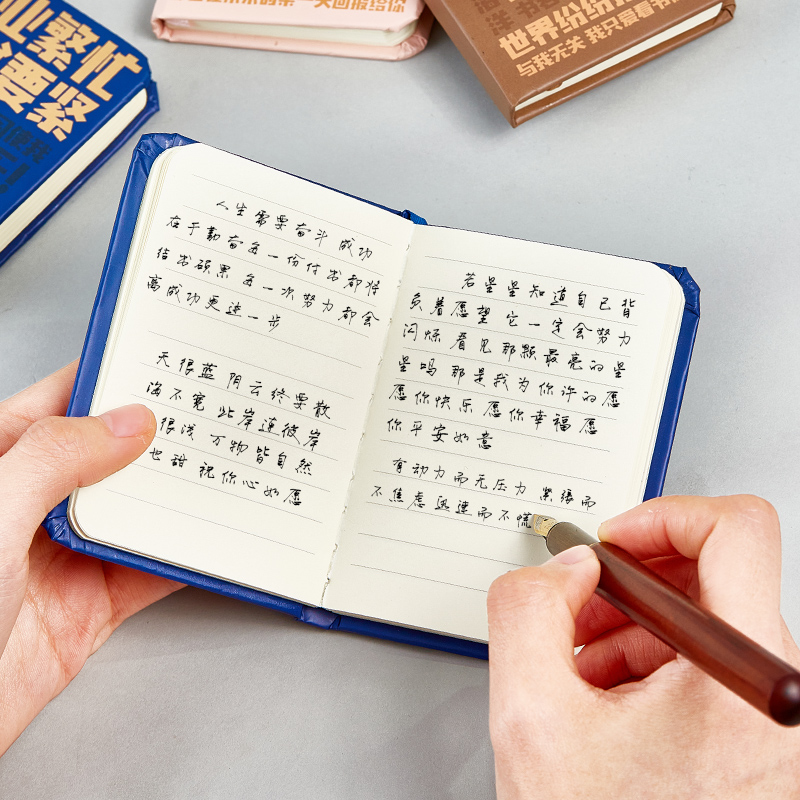 繁忙
要紧
的第一天回报给你
世界纷纷
与我无关 我只爱看书
人生需要奋斗 成功
在于勤奋每一份付出都将
结出硕果 每一次努力都会
离成功更进一步
天很蓝 阴云终要散
海不宽 此岸连彼岸
很浅 万物皆自然
也甜 祝你心如愿
若星星知道自己背
负着愿望 它一定会努力
闪烁 看见那颗最亮的星
星吗 那是我为你许的愿
愿你快乐 愿你幸福 愿
你平安如意
有动力而无压力 紧张而
不焦虑 迅速而不慌